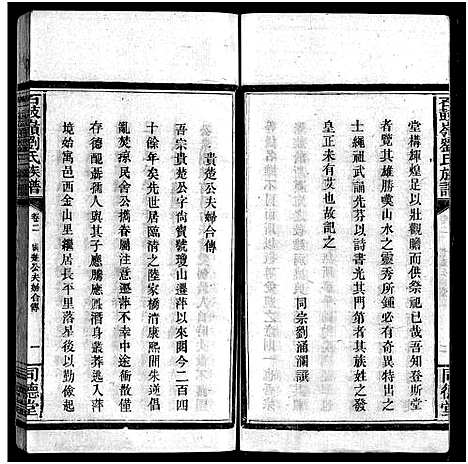 堂構輝煌足以壯觀瞻而供祭祀已哉吾知登斯堂
者覽其雄勝嘆山水之靈秀所鍾必有異才奇傑之
士繩祖武誦先芬以詩書光其門第者其族姓之發
皇正未有艾也故記之
同宗劉涌瀾譔
貴楚公夫婦合傳
吾宗貴楚公字尙賓號瓊山遷萍以來閱今二百四
十餘年矣先世居臨清之陸家橋清康熙間朱逆倡
亂焚掠民舍公攜眷屬注意遷萍不幸中途衝散僅
存德配蕭孺人與二子應騰應熙潛身叢莽越入萍
境始寓邑西金山里繼居長平里落星後以勤儉起
石鼓嶺劉氏族譜
卷二
貴楚公夫婦合傳
一
同德堂
石鼓嶺劉氏族譜
同德堂